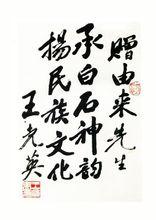 赠由来先生
承白石神韵
扬民族文化
王光英